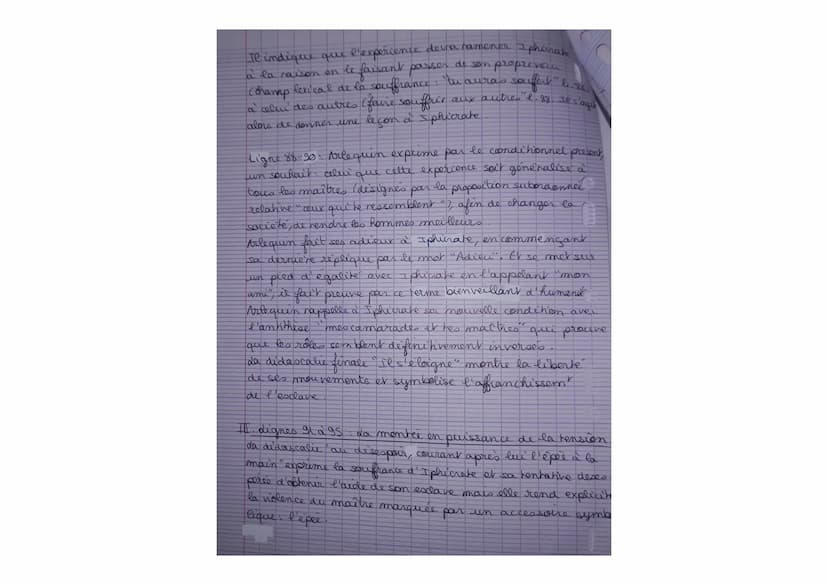 Il indique que l'expérience devra ramener Iphicrate
à la raison en le faisant passer de son propre vécu
(champ lexical de la souffrance : "tu auras souffert" l.
à celui des autres (faire souffrir aux autres" l. 88. Il s'agit
alors de donner une leçon à Iphicrate
Ligne 88-90 : Arlequin exprime par le conditionnel présent,
un souhait : celui que cette expérience soit généralisé à
tous les maîtres (désignés par la proposition subordonnée
relative "ceux qui te ressemblent"), afin de changer la
société, de rendre les hommes meilleurs
Arlequin fait ses adieux à Iphicrate, en commençant
sa dernière réplique par le mot "Adieu". Et se met sur
un pied d'égalité avec Iphicrate en l'appelant "mon
ami", il fait preuve par ce terme bienveillant d'humanité
Arlequin rappelle à Iphicrate sa nouvelle condition avec
l'antithèse "mes camarades et tes maîtres" qui prouve
que les rôles semblent définitivement inversés.
La didascalie finale "il s'éloigne" montre la liberté
de ses mouvements et symbolise l'affranchissemt
de l'esclave.
III. Lignes 91 à 95 : La montée en puissance de la tension
La didascalie "au désespoir, courant après lui l'épée à la
main" exprime la souffrance d'Iphicrate et sa tentative déses
pérée d'obtenir l'aide de son esclave mais elle rend explicite
la violence du maître marquée par un accessoire symbo
lique : l'épée.